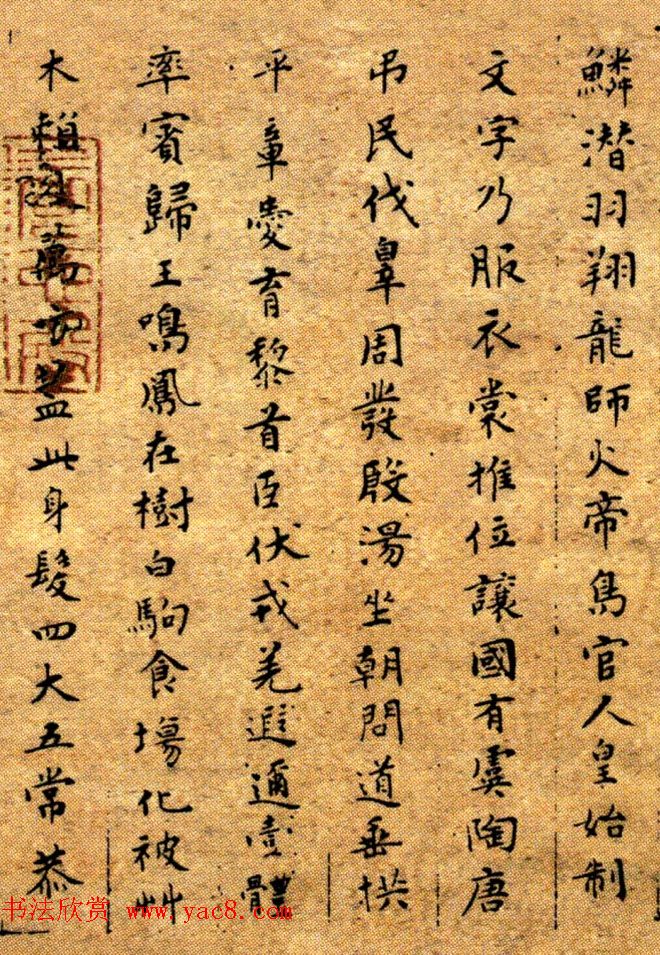 鱗潛羽翔龍師火帝鳥官人皇始制
文字乃服衣裳推位讓國有虞陶唐
弔民伐辠周發殷湯坐朝問道垂拱
平章愛育黎首臣伏戎羌遐邇壹體
率賓歸王鳴鳳在樹白駒食場化被艸
木賴及萬方蓋此身髮四大五常恭
书法欣赏 www.yac8.com